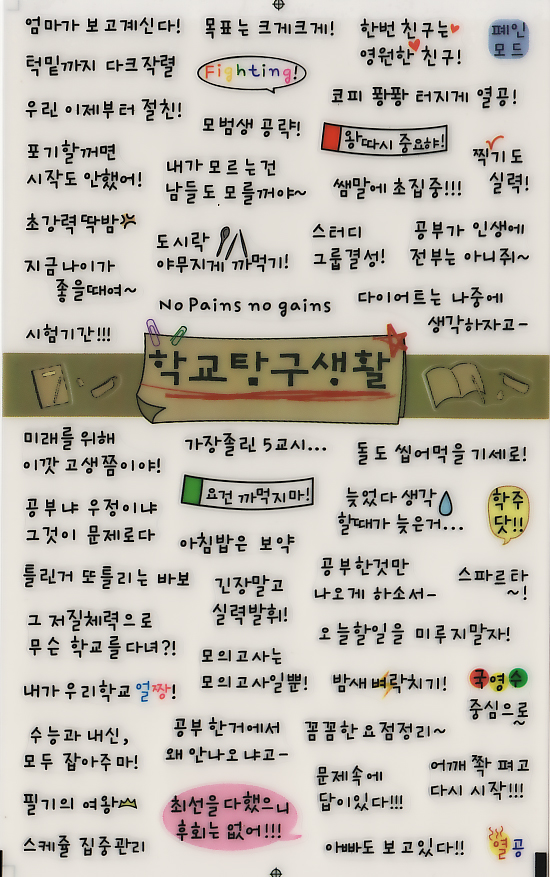 엄마가 보고계신다!
목표는 크게크게!
한번 친구는
영원한 친구!
폐인
모드
턱밑까지 다크작렬
Fighting!
코피 퐝퐝 터지게 열공!
우린 이제부터 절친!
모범생 공략!
왕따시 중요햐!
찍기도
실력!
포기할꺼면
시작도 안했어!
내가 모르는건
남들도 모를꺼야~
쌤말에 초집중!!!
초강력딱밤
도시락
야무지게 까먹기!
스터디
그룹결성!
공부가 인생에
전부는 아니쥐~
지금나이가
좋을때여~
No Pains no gains
다이어트는 나중에
생각하자고-
시험기간!!!
학교탐구생활
미래를 위해
이깟 고생쯤이야!
가장졸린 5교시...
돌도 씹어먹을 기세로!
공부냐 우정이냐
그것이 문제로다
요건 까먹지마!
늦었다 생각
할때가 늦은거...
학주
닷!!
아침밥은 보약
틀린거 또틀리는 바보
긴장말고
실력발휘!
공부한것만
나오게 하소서-
스파르타
~!
그 저질체력으로
무슨 학교를다녀?!
오늘할일을 미루지말자!
모의고사는
모의고사일뿐!
내가 우리학교 얼짱!
밤새벼락치기!
국영수
중심으로
수능과 내신,
모두 잡아주마!
공부 한거에서
왜 안나오냐고-
꼼꼼한요점정리~
문제속에
답이있다!!!
어깨 쫙 펴고
다시 시작!!!
필기의 여왕
최선을다했으니
후회는 없어!!!
스케쥴 집중관리
아빠도 보고있다!!
열공